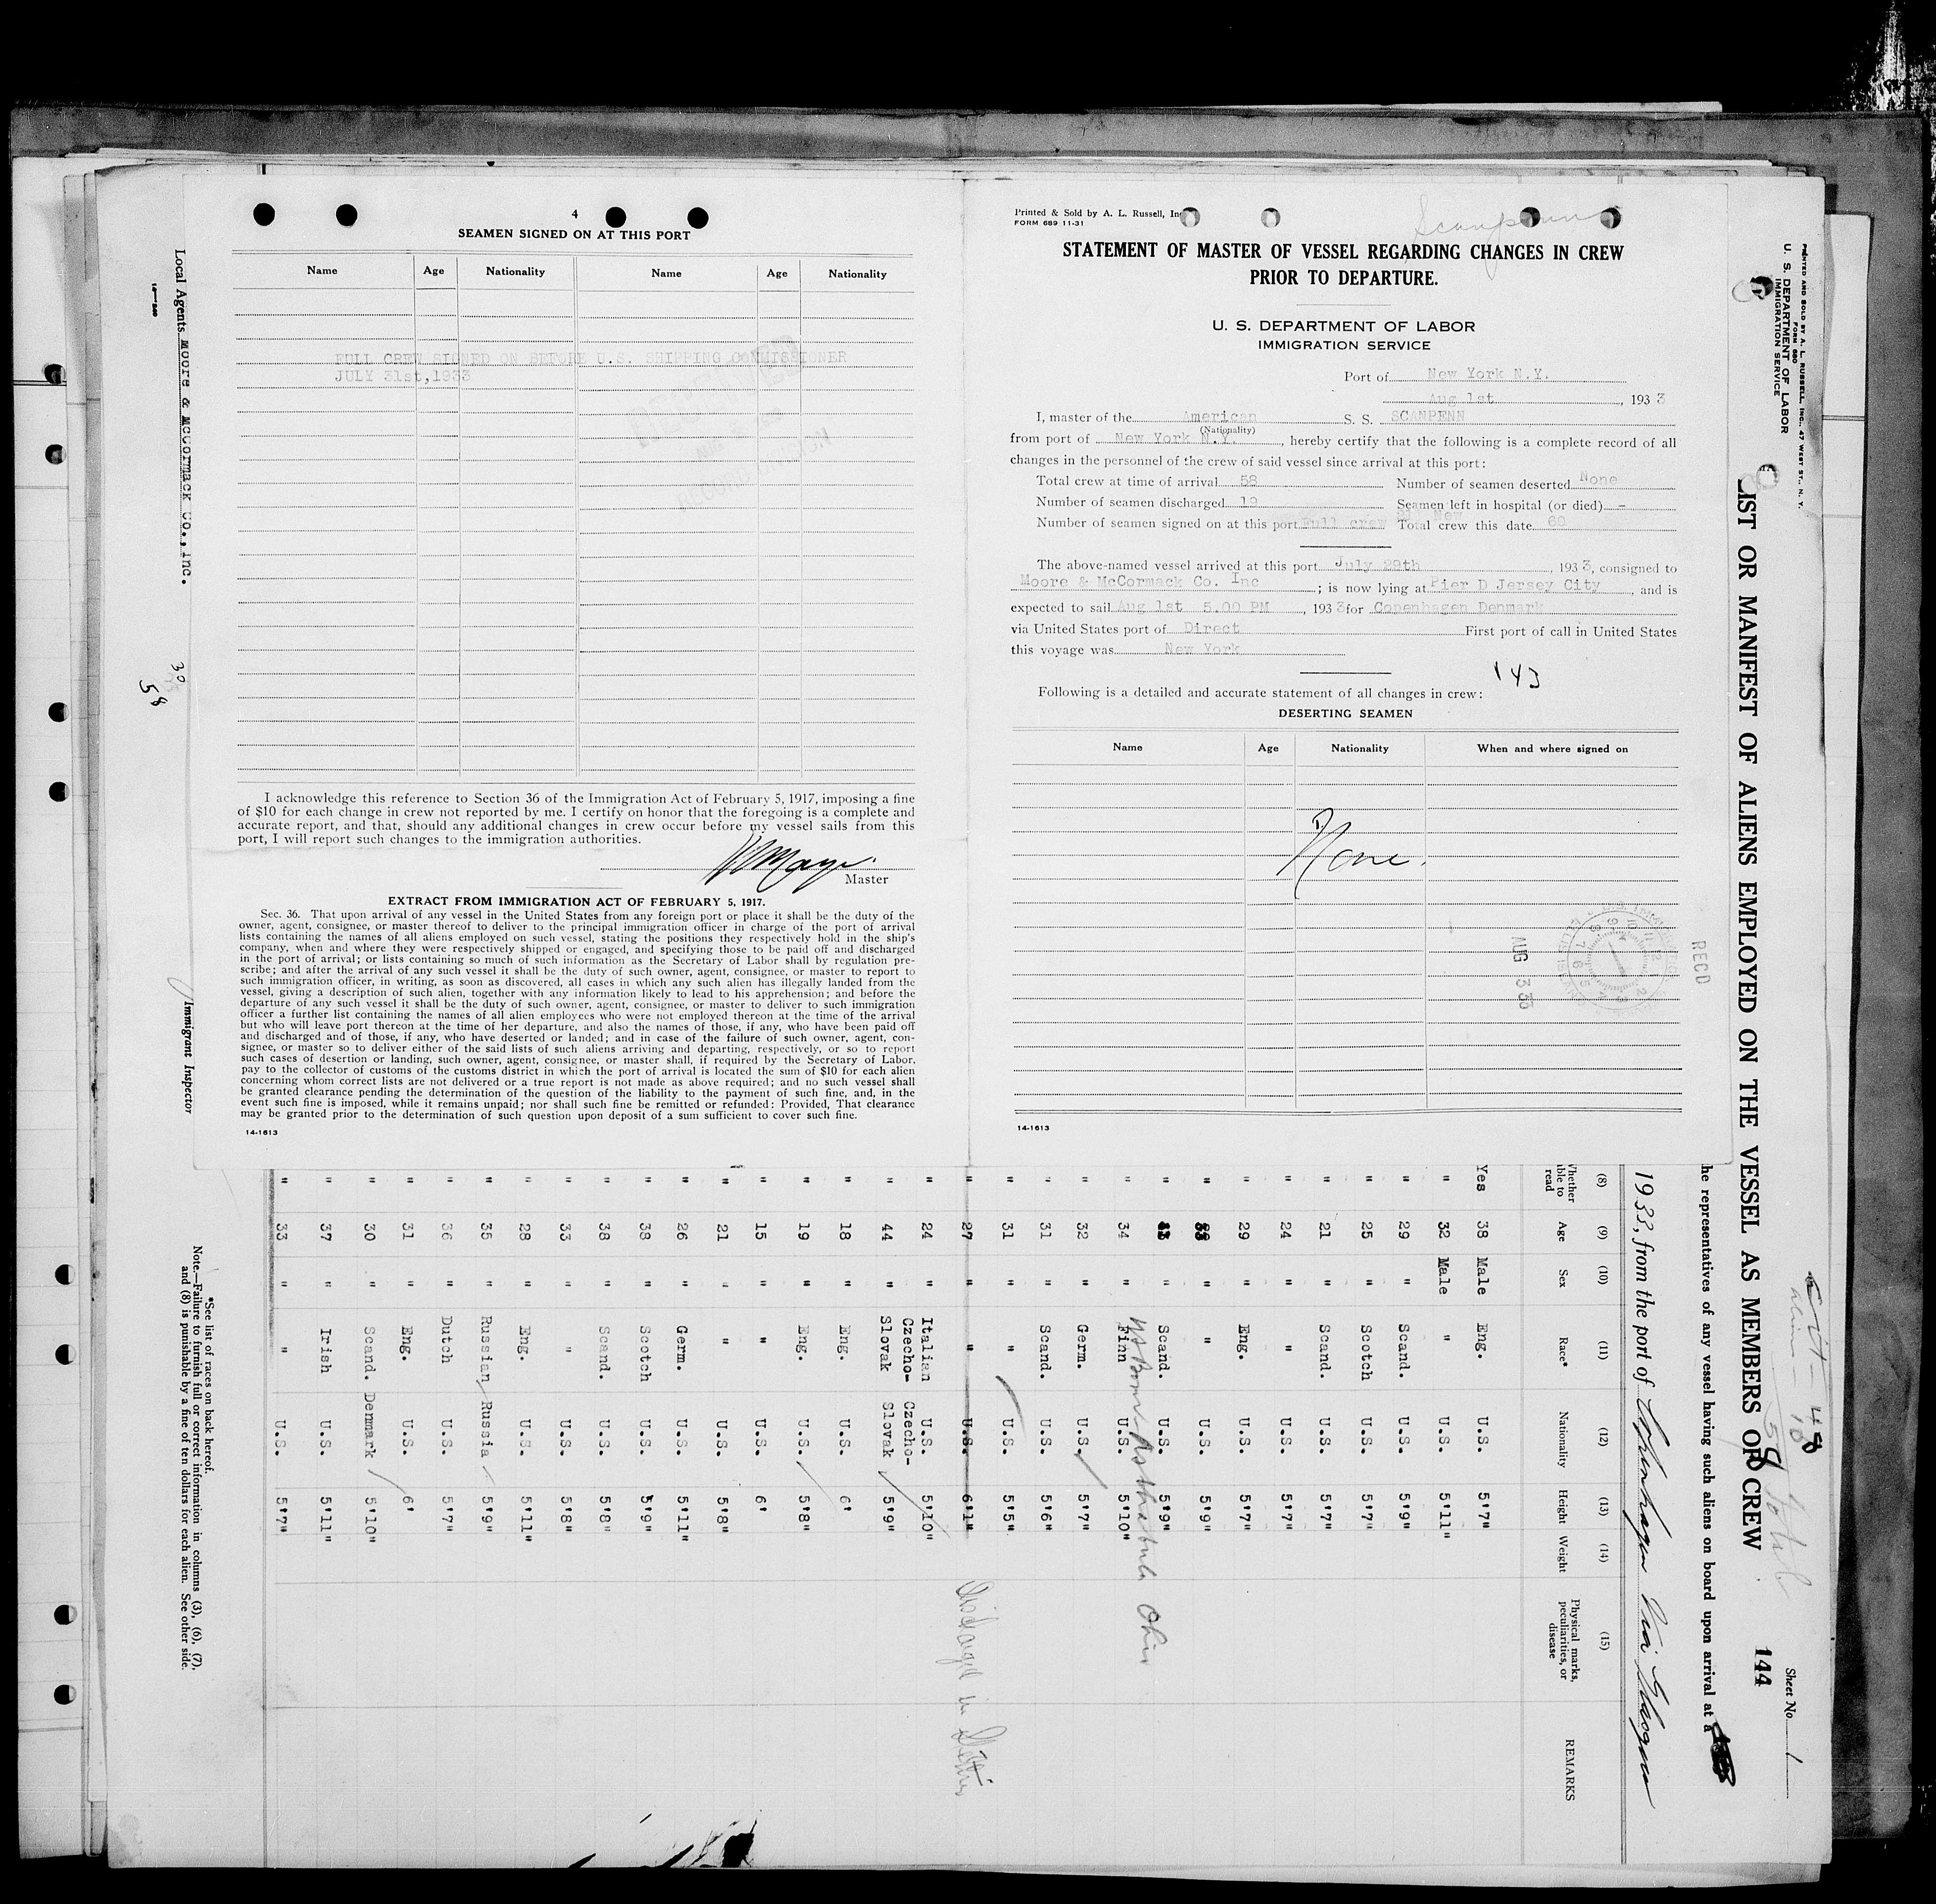 4
SEAMEN SIGNED ON AT THIS PORT
Name Age Nationality Name Age Nationality
FULL CREW SIGNED ON BEFORE U.S. SHIPPING COMMISSIONER
JULY 31st,1933
I acknowledge this reference to Section 36 of the Immigration Act of February 5, 1917, imposing a fine
of $10 for each change in crew not reported by me. I certify on honor that the foregoing is a complete and
accurate report, and that, should any additional changes in crew occur before my vessel sails from this
port, I will report such changes to the immigration authorities.
Master
EXTRACT FROM IMMIGRATION ACT OF FEBRUARY 5, 1917.
Sec. 36. That upon arrival of any vessel in the United States from any foreign port or place it shall be the duty of the
owner, agent, consignee, or master thereof to deliver to the principal immigration officer in charge of the port of arrival
lists containing the names of all aliens employed on such vessel, stating the positions they respectively hold in the ship's
company, when and where they were respectively shipped or engaged, and specifying those to be paid off and discharged
in the port of arrival; or lists containing so much of such information as the Secretary of Labor shall by regulation pre-
scribe; and after the arrival of any such vessel it shall be the duty of such owner, agent, consignee, or master to report to
such immigration officer, in writing, as soon as discovered, all cases in which any such alien has illegally landed from the
vessel, giving a description of such alien, together with any information likely to lead to his apprehension; and before the
departure of any such vessel it shall be the duty of such owner, agent, consignee, or master to deliver to such immigration
officer a further list containing the names of all alien employees who were not employed thereon at the time of the arrival
but who will leave port thereon at the time of her departure, and also the names of those, if any, who have been paid off
and discharged and of those, if any, who have deserted or landed; and in case of the failure of such owner, agent, con-
signee, or master so to deliver either of the said lists of such aliens arriving and departing, respectively, or so to report
such cases of desertion or landing, such owner, agent, consignee, or master shall, if required by the Secretary of Labor,
pay to the collector of customs of the customs district in which the port of arrival is located the sum of $10 for each alien
concerning whom correct lists are not delivered or a true report is not made as above required; and no such vessel shall
be granted clearance pending the determination of the question of the liability to the payment of such fine, and, in the
event such fine is imposed, while it remains unpaid; nor shall such fine be remitted or refunded: Provided, That clearance
may be granted prior to the determination of such question upon deposit of a sum sufficient to cover such fine.
14-1613
Printed & Sold by A. L. Russell, Inc
FORM 689 11-31
Scanpenn
STATEMENT OF MASTER OF VESSEL REGARDING CHANGES IN CREW
PRIOR TO DEPARTURE.
U. S. DEPARTMENT OF LABOR
IMMIGRATION SERVICE
Port of New York N.Y.
Aug 1st , 193 3
I, master of the American S. S. SCANPENN
(Nationality)
from port of New York N.Y. , hereby certify that the following is a complete record of all
changes in the personnel of the crew of said vessel since arrival at this port:
Total crew at time of arrival 58 Number of seamen deserted None
Number of seamen discharged 19 Seamen left in hospital (or died) -
Number of seamen signed on at this port Full crew New Total crew this date 60
The above-named vessel arrived at this port July 29th , 193 3, consigned to
Moore & McCormack Co. Inc ; is now lying at Pier D Jersey City , and is
expected to sail Aug 1st 5.00 PM , 193 3 for Copenhagen Denmark
via United States port of Direct First port of call in United States
this voyage was New York
143
Following is a detailed and accurate statement of all changes in crew:
DESERTING SEAMEN
Name Age Nationality When and where signed on
None.
AUG 3 33
RECD
14-1613
Local Agents Moore & McCormack Co., Inc.
30
58
Immigrant Inspector
PRINTED AND SOLD BY A. L. RUSSELL, INC., 47 WEST ST., N. Y.
FORM 680
U. S. DEPARTMENT OF LABOR
IMMIGRATION SERVICE
Sheet No. 1
144
LIST OR MANIFEST OF ALIENS EMPLOYED ON THE VESSEL AS MEMBERS OF CREW
58 Total
he representatives of any vessel having such aliens on board upon arrival at a
1933, from the port of Copenhagen Via
(8) (9) (10) (11) (12) (13) (14) (15)
Whether able to read Age Sex Race* Nationality Height Weight Physical marks, peculiarities, or disease REMARKS
Yes 38 Male Eng. U.S. 5'7"
" 32 Male " U.S. 5'11"
" 29 " Scand. U.S. 5'9"
" 25 " Scotch U.S. 5'7"
" 21 " Scand. U.S. 5'7"
" 24 " " U.S. 5'7"
" 29 " Eng. U.S. 5'7"
" " " U.S. 5'9"
" " Scand. U.S. 5'9"
Ohio
" 34 " Finn U.S. 5'10"
" 32 " Germ. U.S. 5'7"
" 31 " Scand. U.S. 5'6"
" 31 " " U.S. 5'5"
" 27 " " U.S. 6'1" Discharged in
" 24 " Italian U.S. 5'10"
" 44 " Czecho-Slovak Czecho-Slovak 5'9"
" 18 " Eng. U.S. 6'
" 19 " Eng. U.S. 5'8"
" 15 " " U.S. 6'
" 21 " " U.S. 5'8"
" 26 " Germ. U.S. 5'11"
" 38 " Scotch U.S. 5'9"
" 38 " Scand. U.S. 5'8"
" 33 " " U.S. 5'8"
" 28 " Eng. U.S. 5'11"
" 35 " Russian Russia 5'9"
" 36 " Dutch U.S. 5'7"
" 31 " Eng. U.S. 6'
" 30 " Scand. Denmark 5'10"
" 37 " Irish U.S. 5'11"
" 33 " " U.S. 5'7"
*See list of races on back hereof.
Note.—Failure to furnish full or correct information in columns (3), (6), (7),
and (8) is punishable by a fine of ten dollars for each alien. See other side.